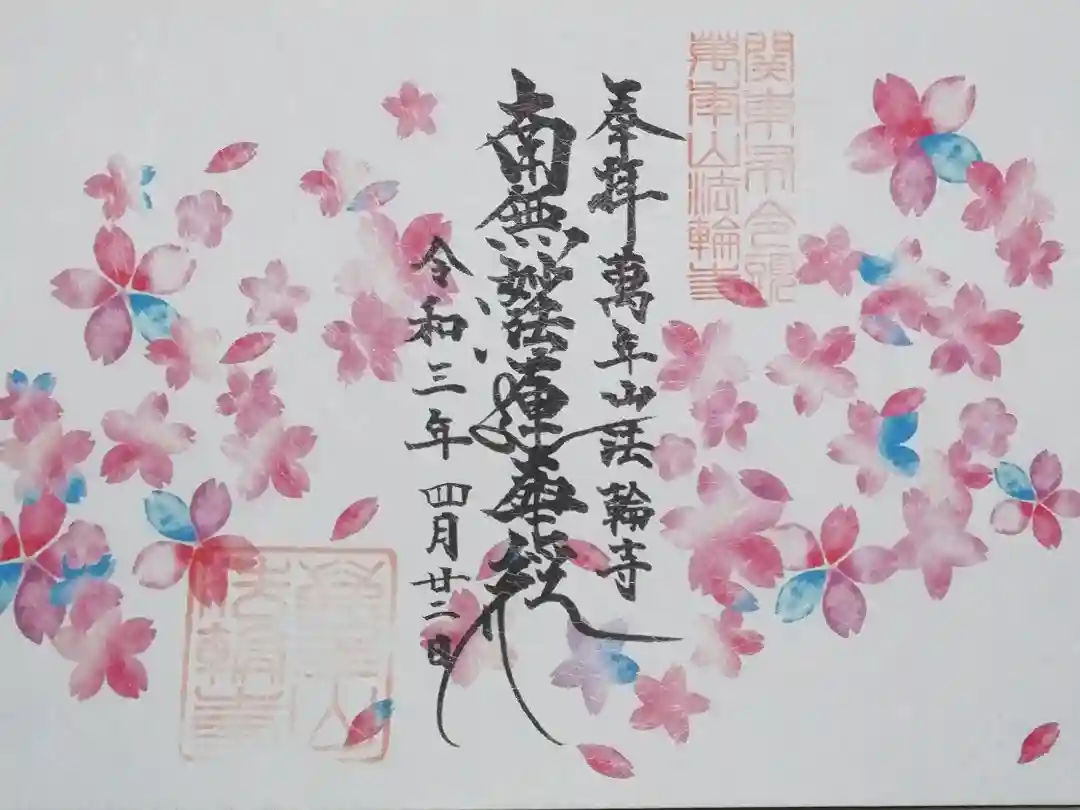 關東弘令號
萬年山法輪寺
奉拝 萬年山法輪寺
南無妙法蓮華経
令和三年 四月廿二日
萬年山
法輪寺